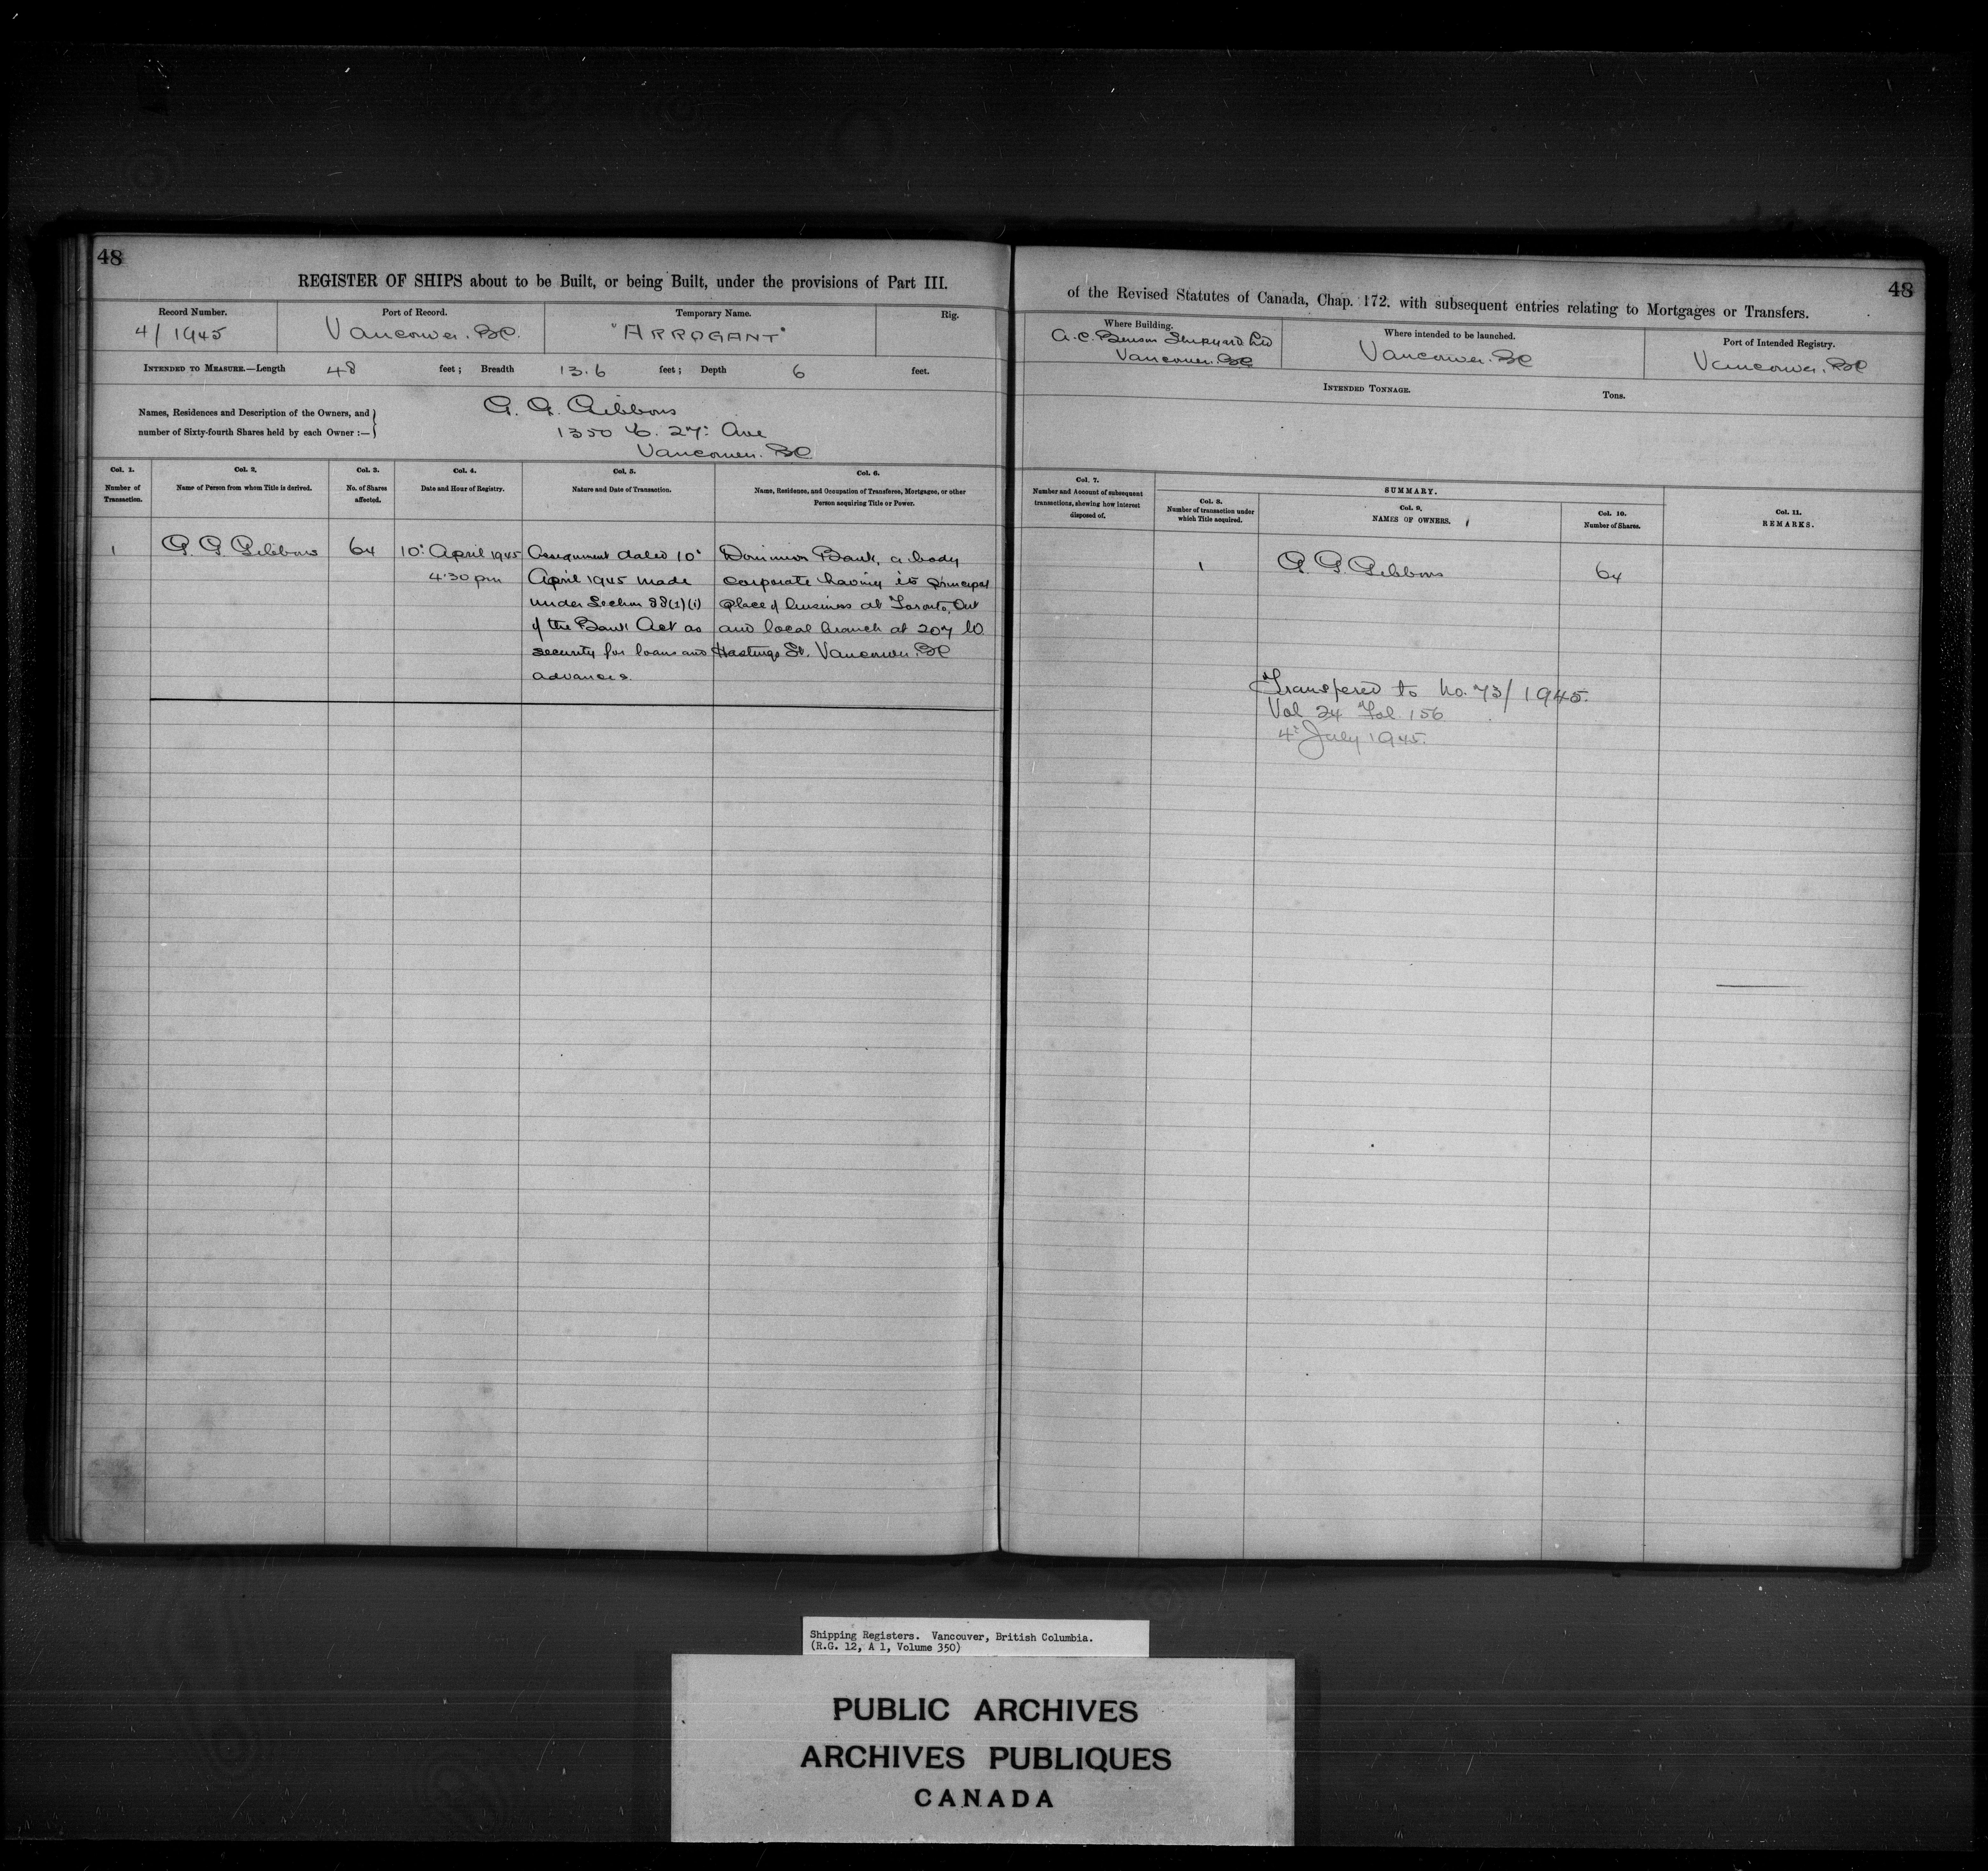 48
REGISTER OF SHIPS about to be Built, or being Built, under the provisions of Part III.
Record Number.
4/1945
Port of Record.
Vancouver. BC.
Temporary Name.
"ARROGANT"
Rig.
INTENDED TO MEASURE.—Length 48 feet; Breadth 13.6 feet; Depth 6 feet.
Names, Residences and Description of the Owners, and
number of Sixty-fourth Shares held by each Owner :—
G. G. Gibbons
1350 E. 27: Ave
Vancouver. BC
Col. 1.
Number of
Transaction.
Col. 2.
Name of Person from whom Title is derived.
Col. 3.
No. of Shares
affected.
Col. 4.
Date and Hour of Registry.
Col. 5.
Nature and Date of Transaction.
Col. 6.
Name, Residence, and Occupation of Transferee, Mortgagee, or other
Person acquiring Title or Power.
1
G. G. Gibbons
64
10: April 1945
4.30 pm
Assignment dated 10:
April 1945 made
under Section 88(1)(i)
of the Bank Act as
security for loans and
advances.
Dominion Bank, a body
corporate having its principal
place of business at Toronto, Ont
and local branch at 207 W.
Hastings St. Vancouver. BC
48
of the Revised Statutes of Canada, Chap. 172. with subsequent entries relating to Mortgages or Transfers.
Where Building.
A. C. Benson Shipyard Ltd
Vancouver. BC
Where intended to be launched.
Vancouver. BC
Port of Intended Registry.
Vancouver. BC
INTENDED TONNAGE.
Tons.
Col. 7.
Number and Account of subsequent
transactions, shewing how interest
disposed of.
SUMMARY.
Col. 8.
Number of transaction under
which Title acquired.
Col. 9.
NAMES OF OWNERS.
Col. 10.
Number of Shares.
Col. 11.
REMARKS.
1
G. G. Gibbons
64
Transfered to No. 73/1945.
Vol 24 Fol. 156
4: July 1945.
Shipping Registers. Vancouver, British Columbia.
(R.G. 12, A 1, Volume 350)
PUBLIC ARCHIVES
ARCHIVES PUBLIQUES
CANADA